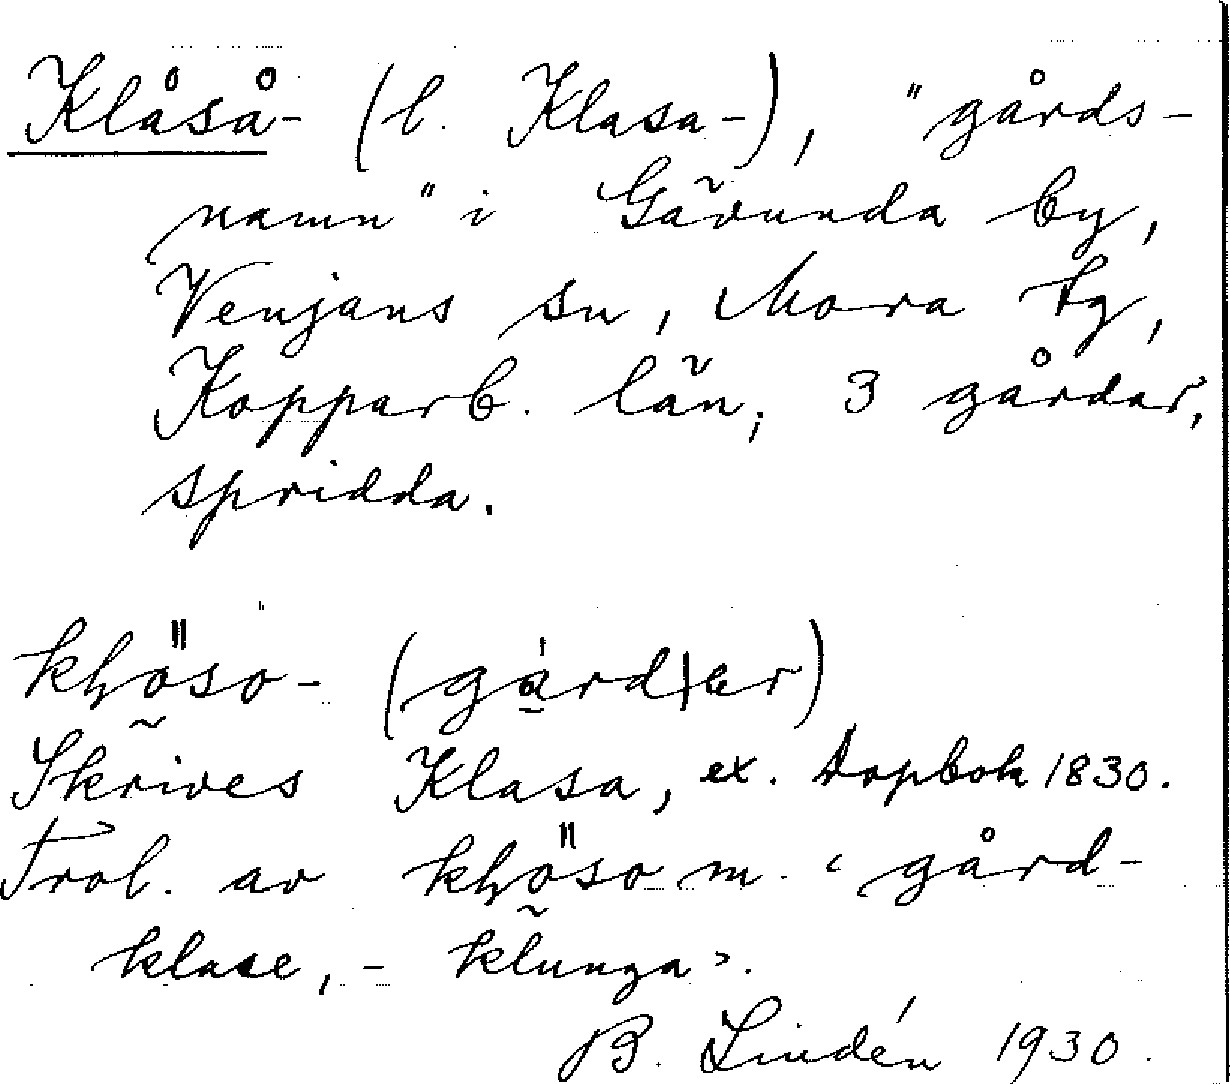 Klåså- (l. Klasa-), "gårds-
namn" i Gävunda by,
Venjans sn, Mora tg,
Kopparb. län; 3 gårdar,
spridda.
Skrives Klasa, ex. Dopbok 1830.
Trol. av m. ‹gård-
klase, - klunga›.
B. Lindén 1930.